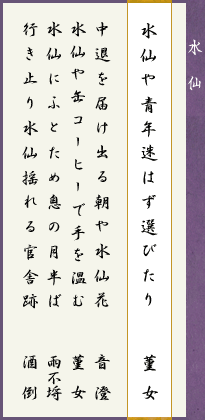 水仙
水仙や青年迷はず選びたり 菫女
中退を届け出る朝や水仙花 音澄
水仙や缶コーヒーで手を温む 菫女
水仙にふとため息の月半ば 雨不埓
行き止り水仙揺れる官舎跡 酒倒